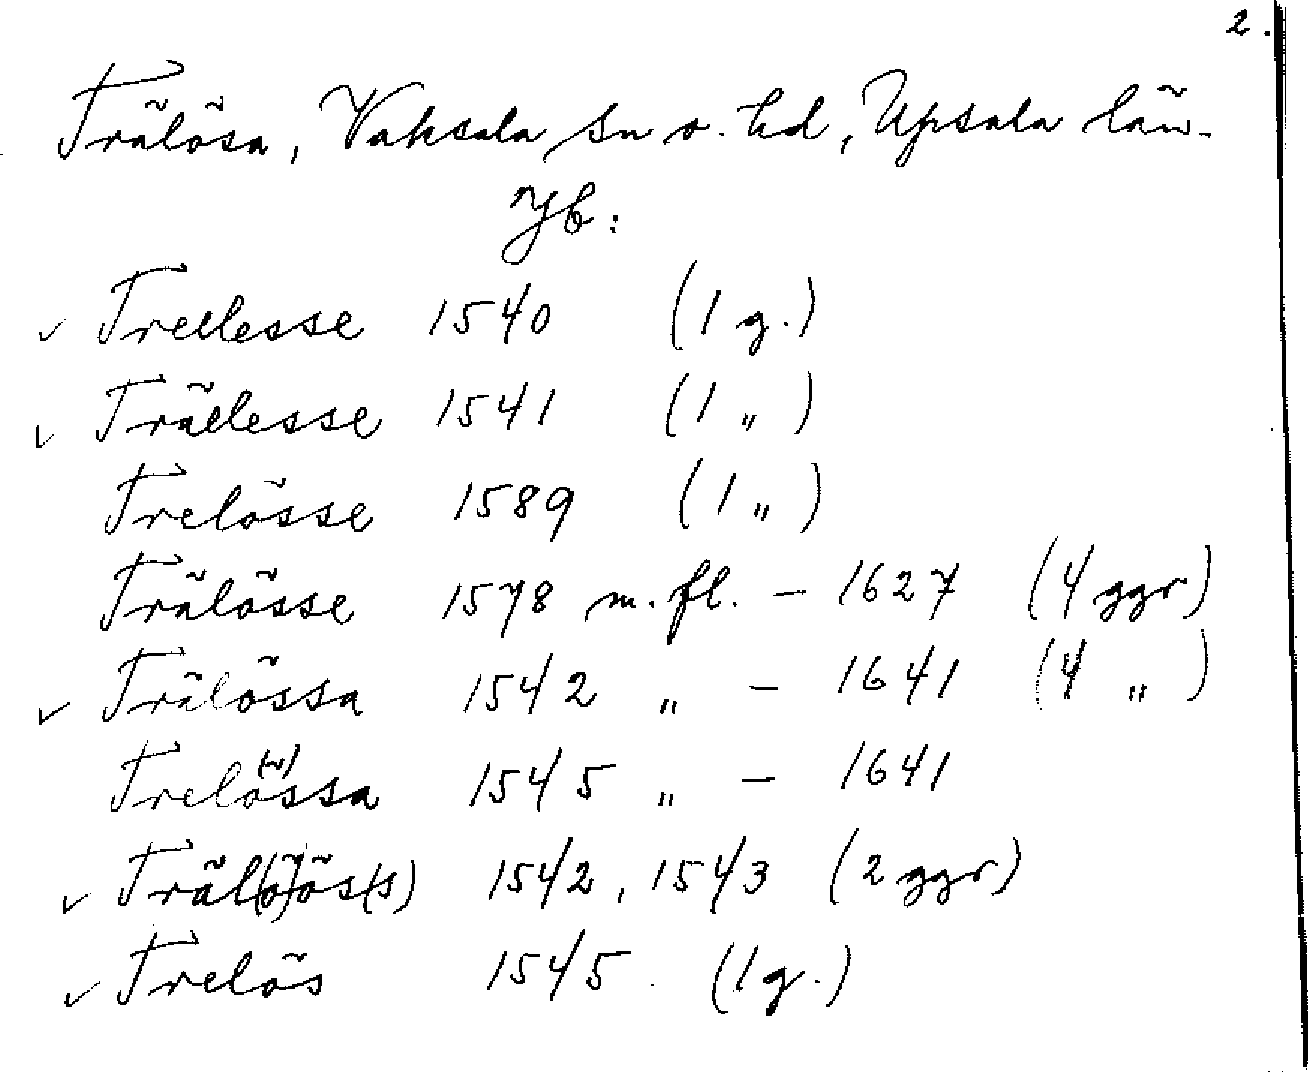 2.
Trälösa, Vaksala sn o. hd, Upsala län.
Jb:
✓ Trellesse 1540 (1 g.)
✓ Trällesse 1541 (1 „)
Trelösse 1589 (1 „)
Trälösse 1578 m.fl. - 1627 (4 ggr)
✓ Trälössa 1542 „ - 1641 (4 „)
Trelö(~)ssa 1545 „ - 1641
✓ Träl(ö)ös(s) 1542, 1543 (2 ggr)
✓ Trelös 1545. (1 g.)